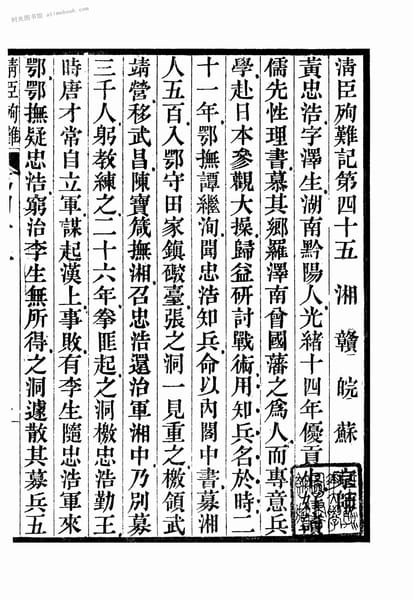 時光图书馆 atimebook.com
清臣殉難記第四十五 湘 贛 皖 蘇
黃忠浩字澤生湖南黔陽人光緒十四年優貢
儒先性理書慕其鄉羅澤南曾國藩之為人而專意兵
學赴日本參觀大操歸益研討戰術用知兵名於時二
十一年鄂撫譚繼洵聞忠浩知兵命以內閣中書募湘
人五百入鄂守田家鎮礮臺張之洞一見重之檄領武
靖營移武昌陳寶箴撫湘召忠浩還治軍湘中乃別募
三千人躬教練之二十六年拳匪起之洞檄忠浩勤王
時唐才常自立軍謀起漢上事敗有李生隨忠浩軍來
鄂鄂撫疑忠浩窮治李生無所得之洞遽散其募兵五
清臣殉難